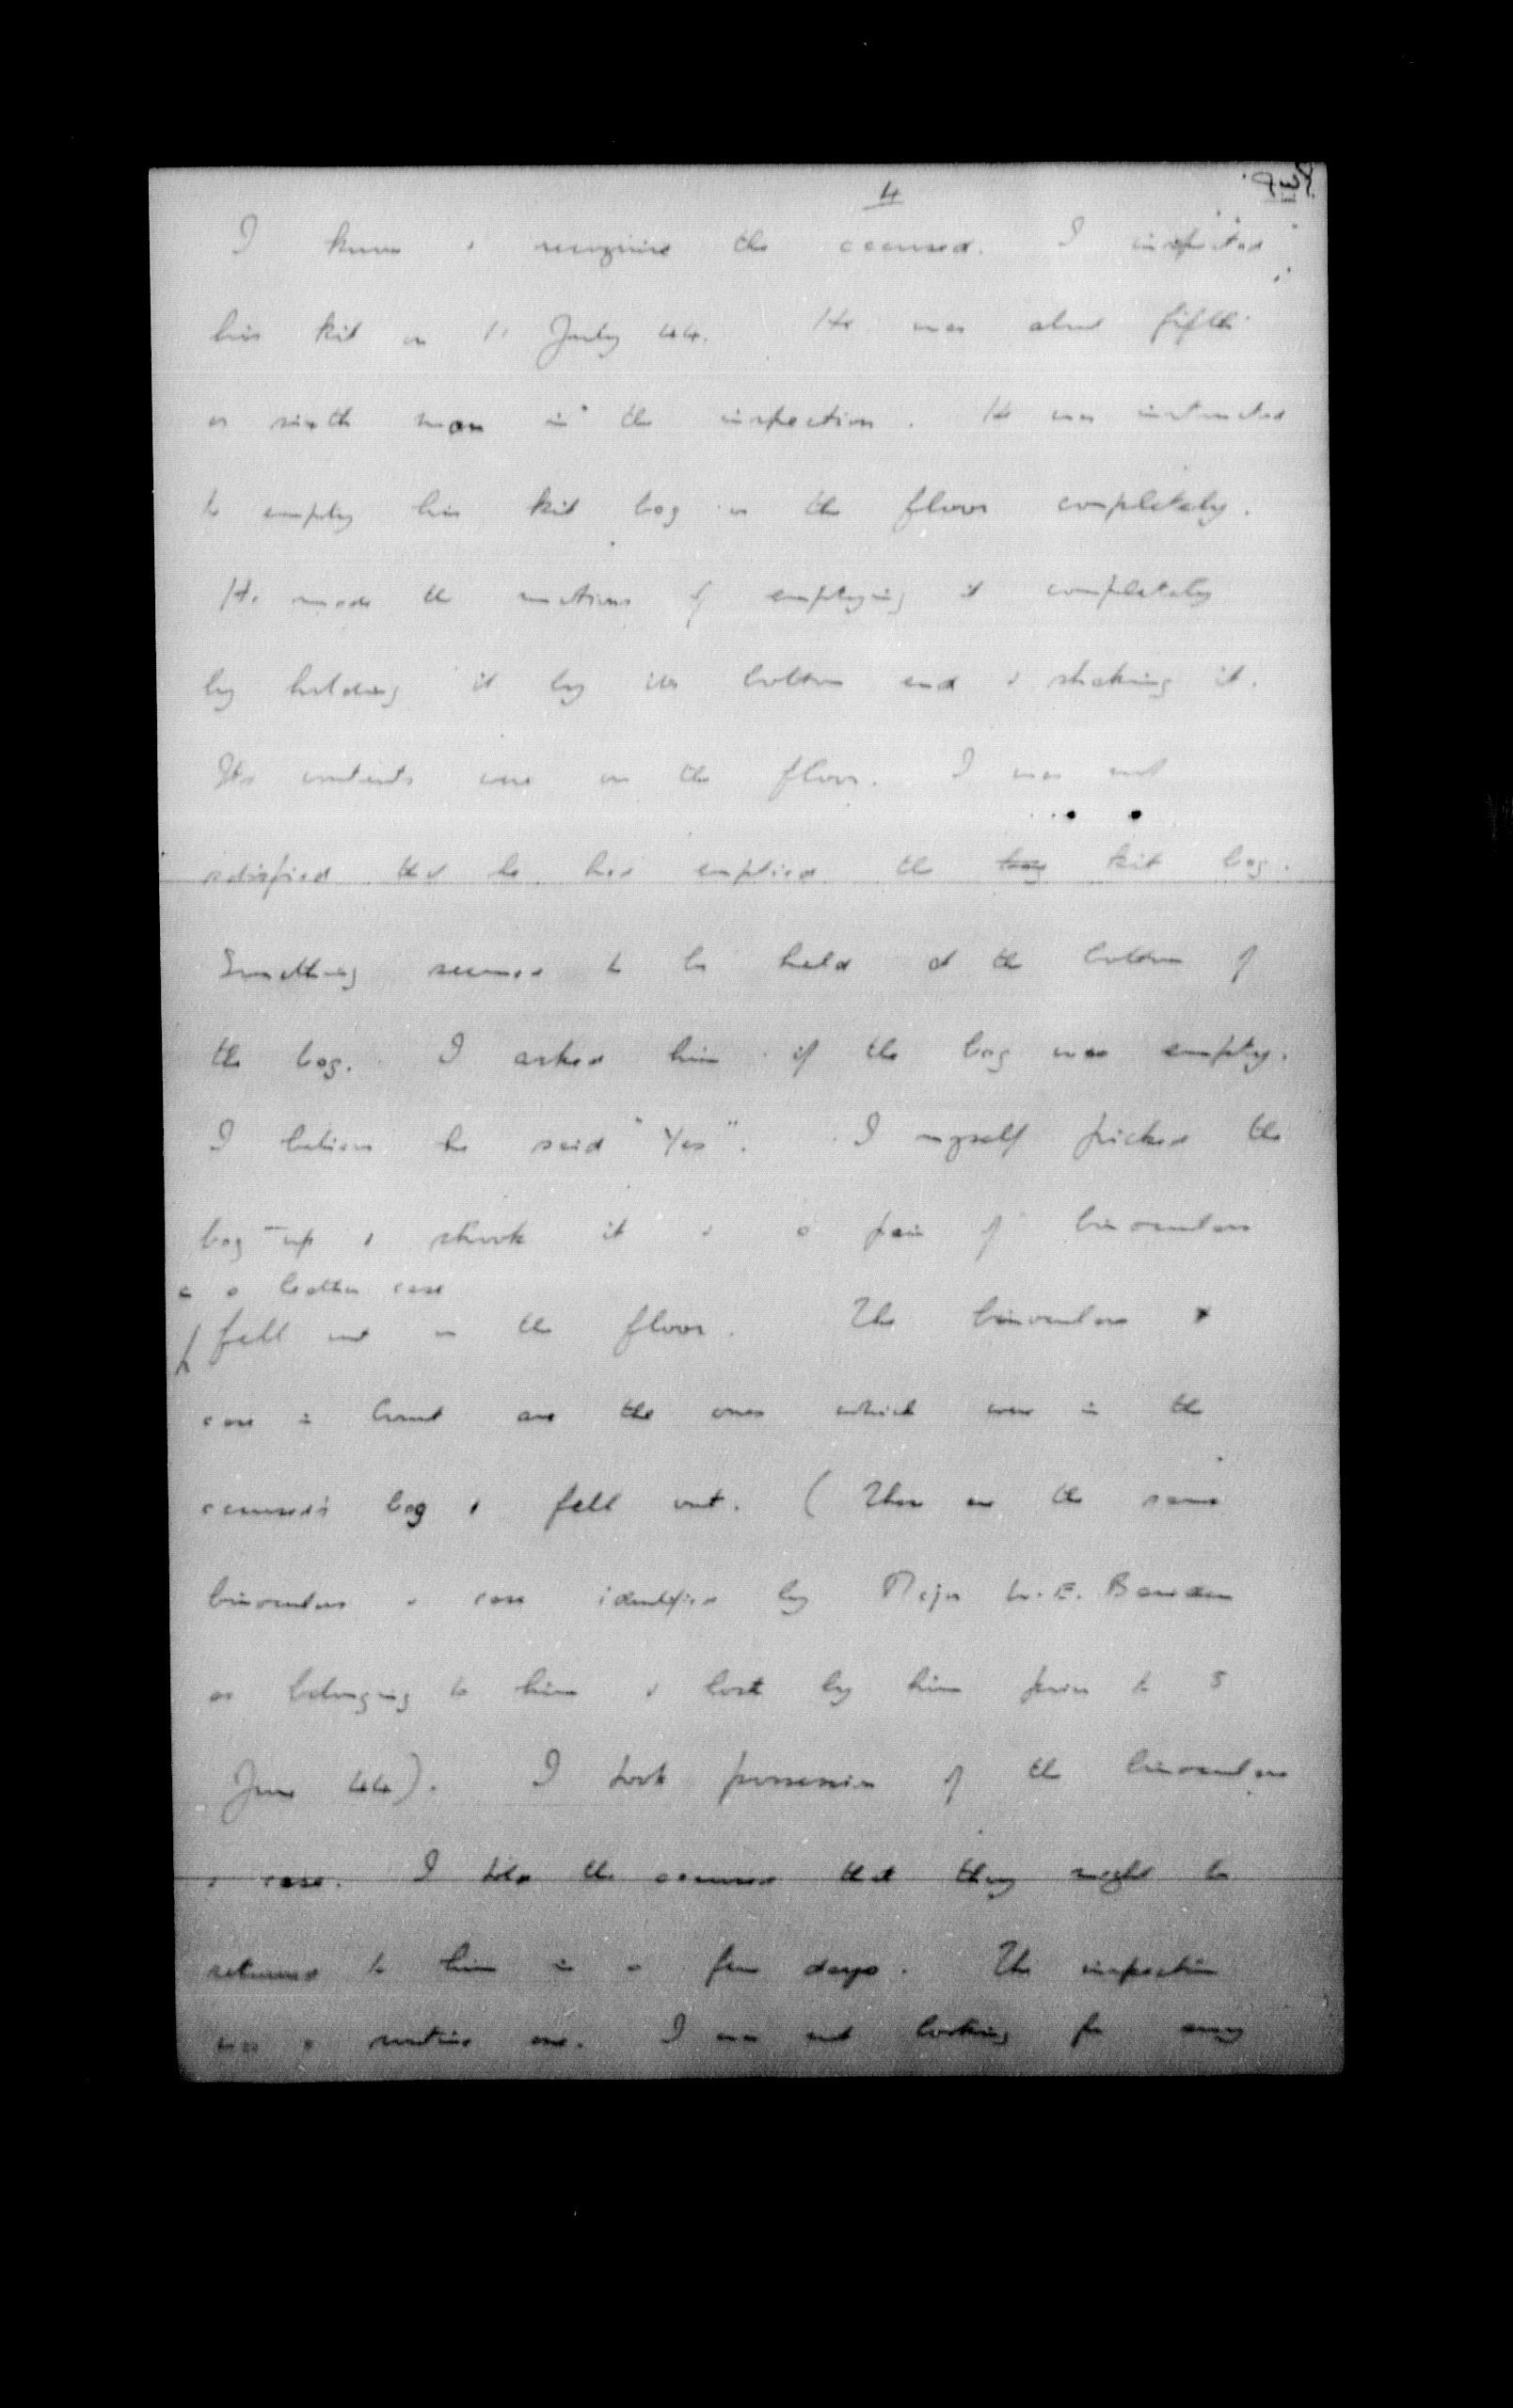 4
I know & recognise the accused. I inspected
his kit on 11 July 44. He was about fifth
or sixth man in the inspection. He was instructed
to empty his kit bag on the floor completely.
He made the motions of emptying it completely
by holding it by its bottom end & shaking it.
Its contents were on the floor. I was not
satisfied that he had emptied the bag kit bag.
Something seemed to be held at the bottom of
the bag. I asked him if the bag was empty.
I believe he said "Yes". I myself picked the
bag up & shook it & a pair of binoculars
& a leather case
fell out on the floor. The binoculars &
case in Court are the ones which were in the
accused's bag & fell out. (These are the same
binoculars & case identified by Major W.E. Bowden
as belonging to him & lost by him prior to 5
June 44). I took possession of the binoculars
& case. I told the accused that they might be
returned to him in a few days. The inspection
was a routine one. I was not looking for any